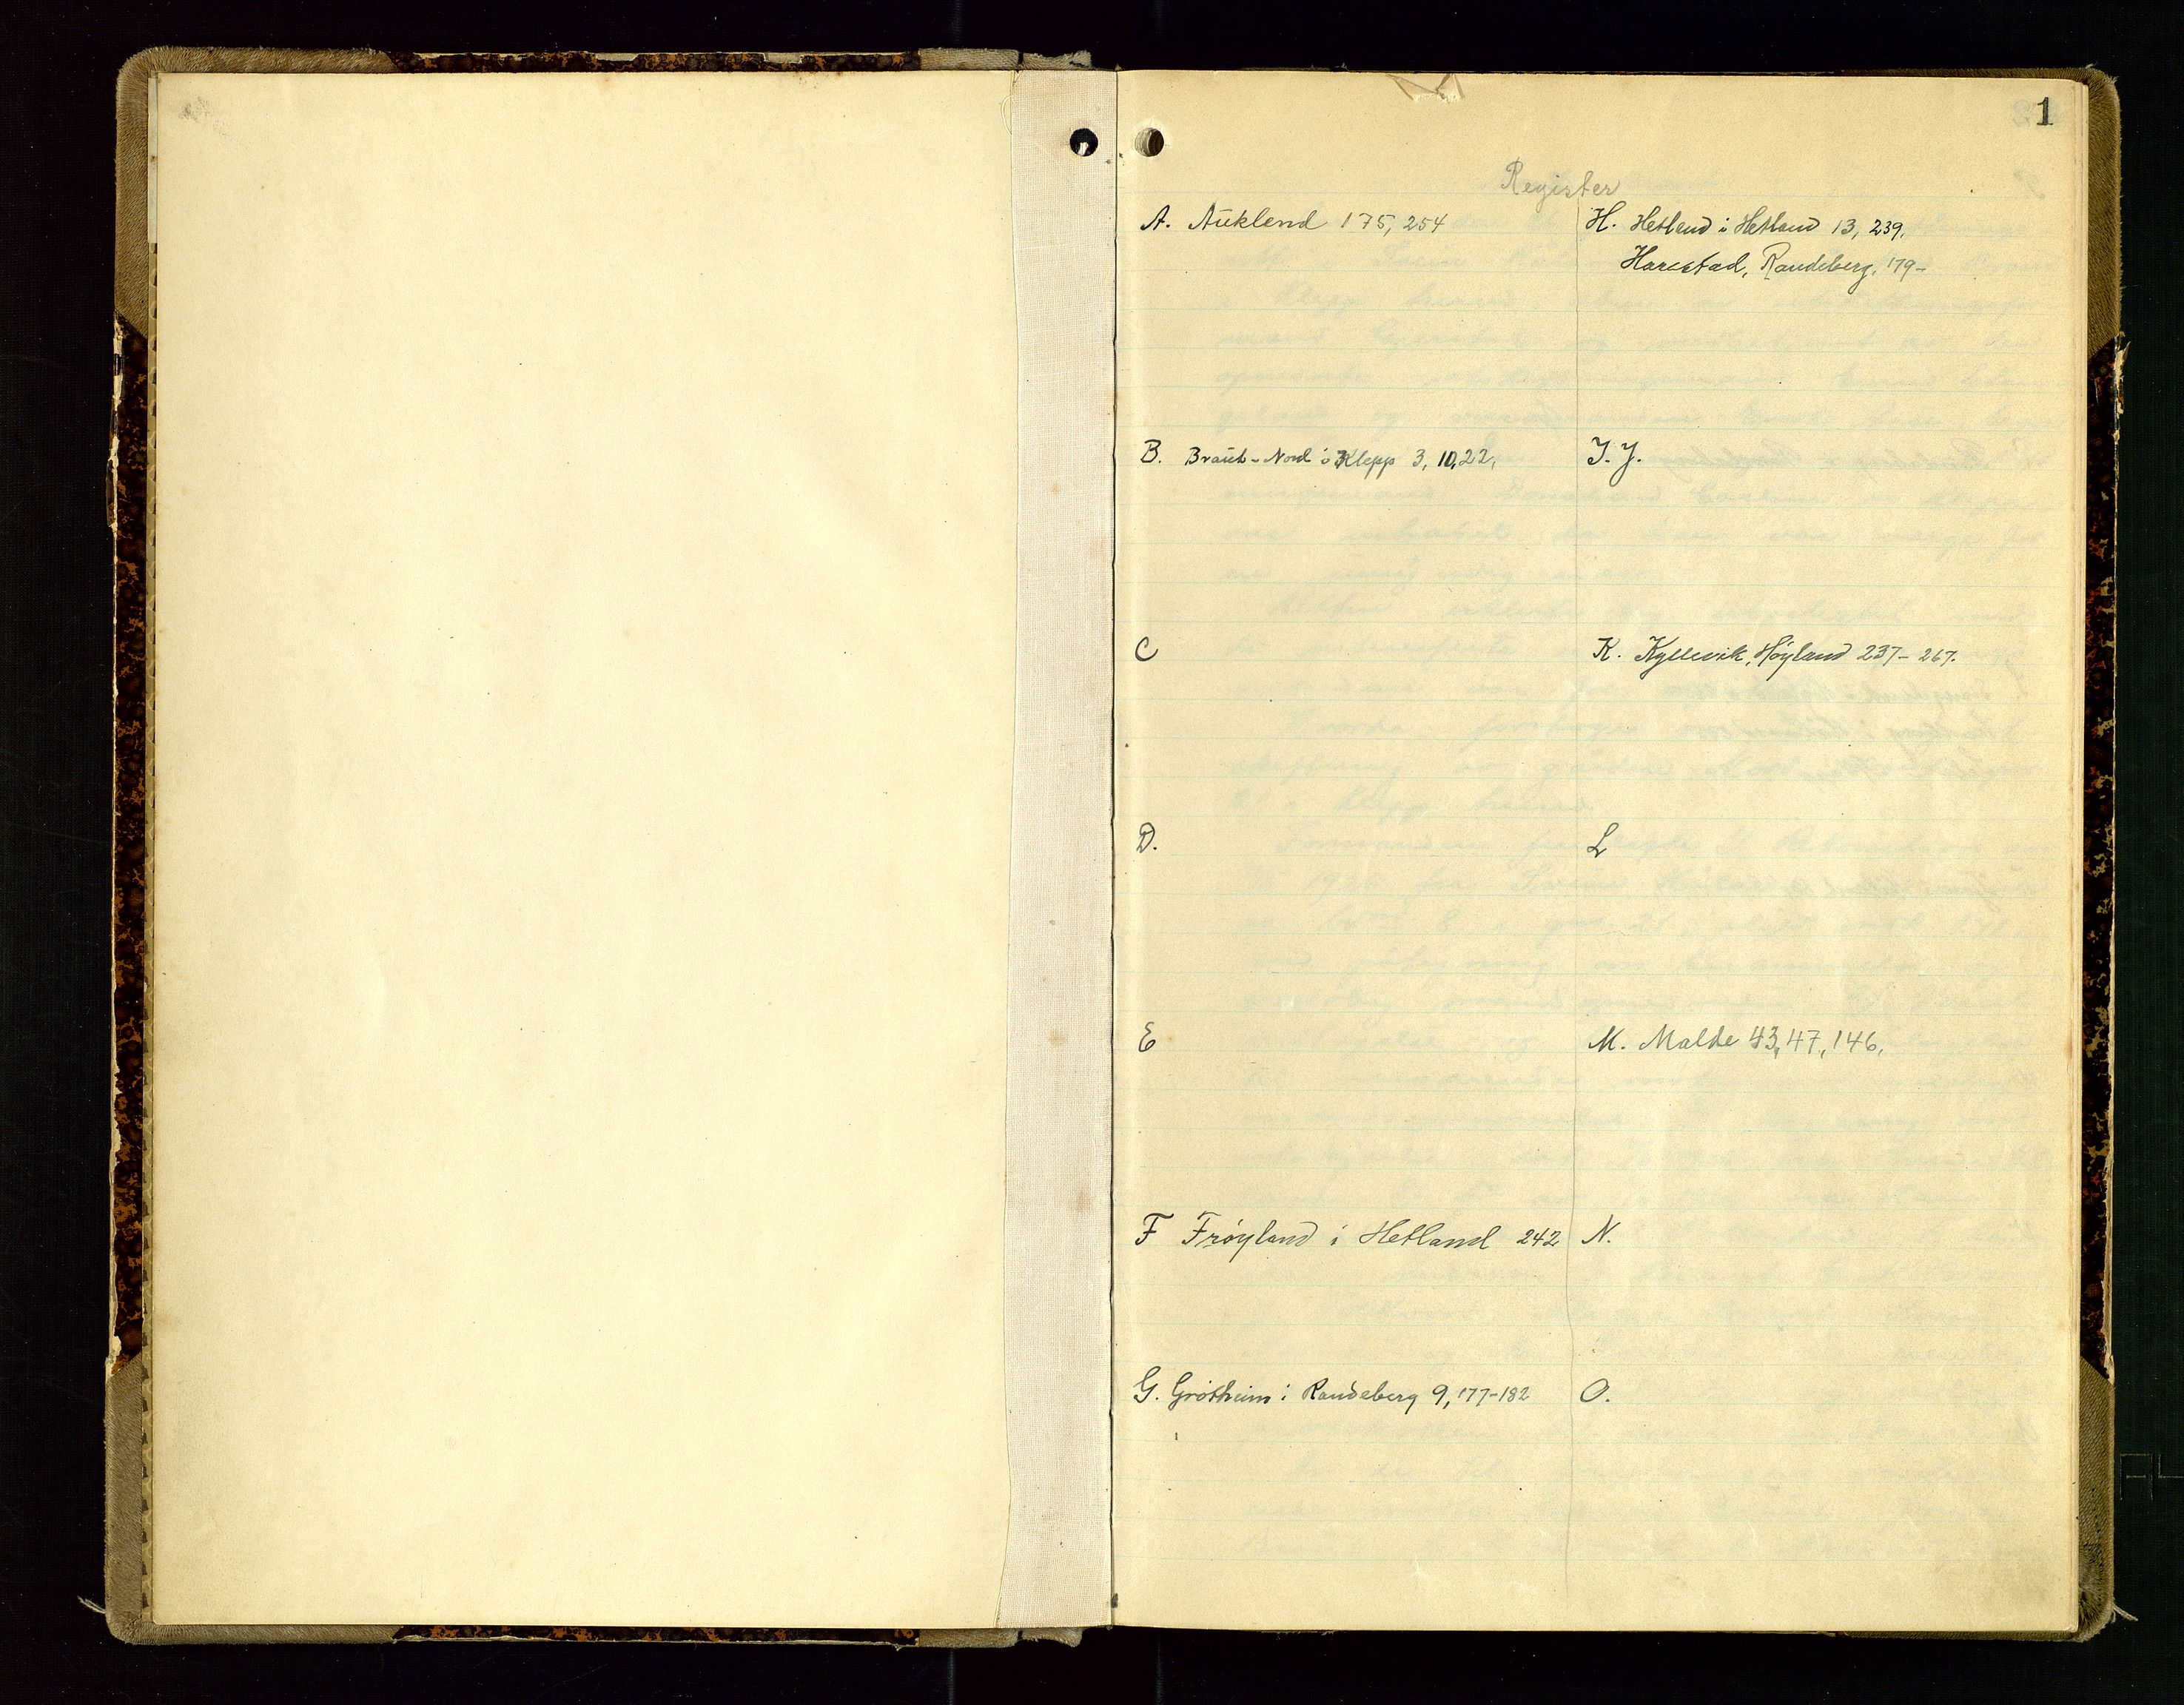 1
Register
A. Aŭklend 175, 254
B. Braŭt-Nord i Klepp 3, 10, 22,
C
D.
E
F Frøyland i Hetland 242
G. Grötheim i Randeberg 9, 177-182
H. Hetland i Hetland 13, 239.
Harestad, Randeberg, 179-
I. J.
K. Kyllevik, Høyland 237- 267.
L
M. Malde 43, 47, 146,
N.
O.